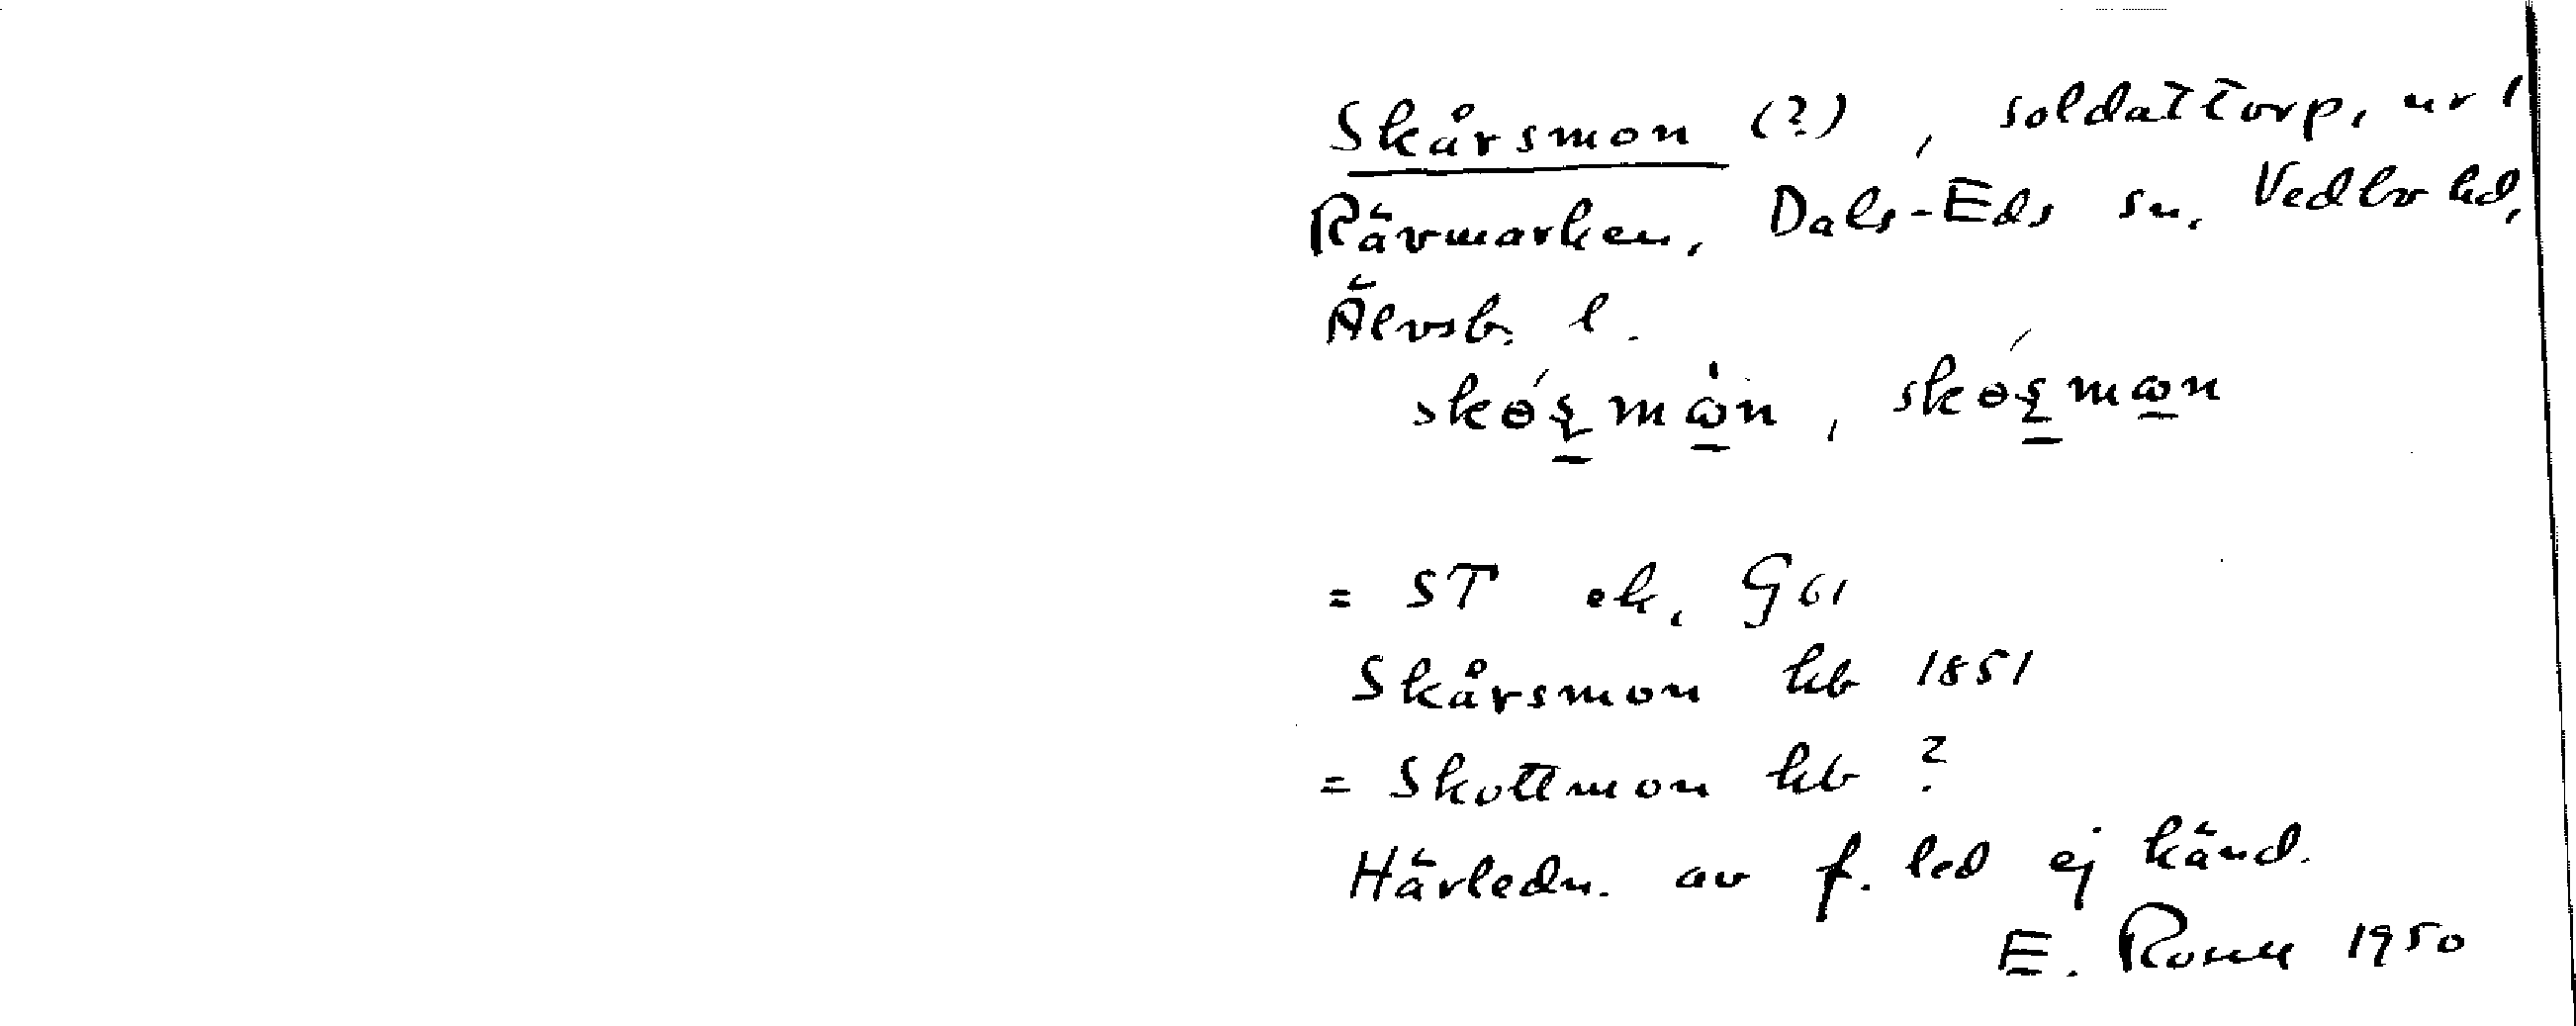 Skårsmon (?), soldattorp, nr 1
Rävmarken, Dals-Eds sn, Vedbo hd,
Älvsb. l.
= ST ek. G61
Skårsmon kb 1851
= Skottmon kb ?
Härledn. av f. led ej känd.
E. Rosell 1950